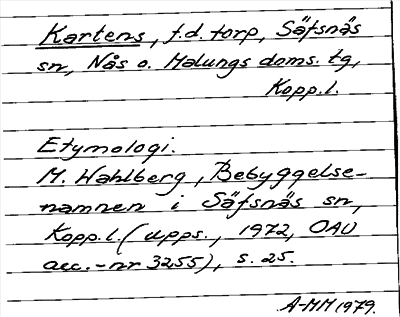 Kartens, f.d. torp, Säfsnäs
sn, Nås o. Malungs doms. tg,
Kopp.l.
Etymologi.
M. Wahlberg, Bebyggelse-
namnen i Säfsnäs sn,
Kopp.l. (upps., 1972, OAU
acc.-nr 3255), s. 25.
A-MM 1979.